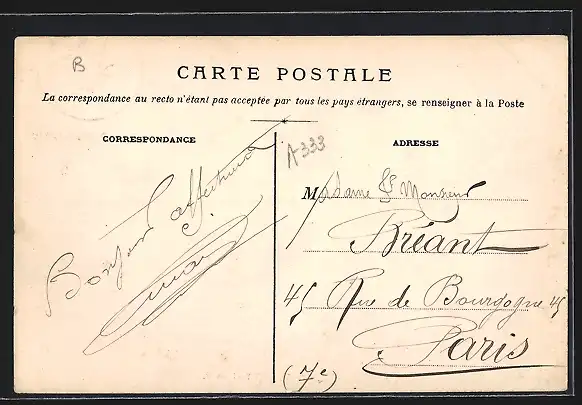 B
CARTE POSTALE
La correspondance au recto n'étant pas acceptée par tous les pays étrangers, se renseigner à la Poste
CORRESPONDANCE
ADRESSE
A333
Bonjour affectueux
Madame & Monsieur
Bréant
45 Rue de Bourgogne 45
Paris
(7e)